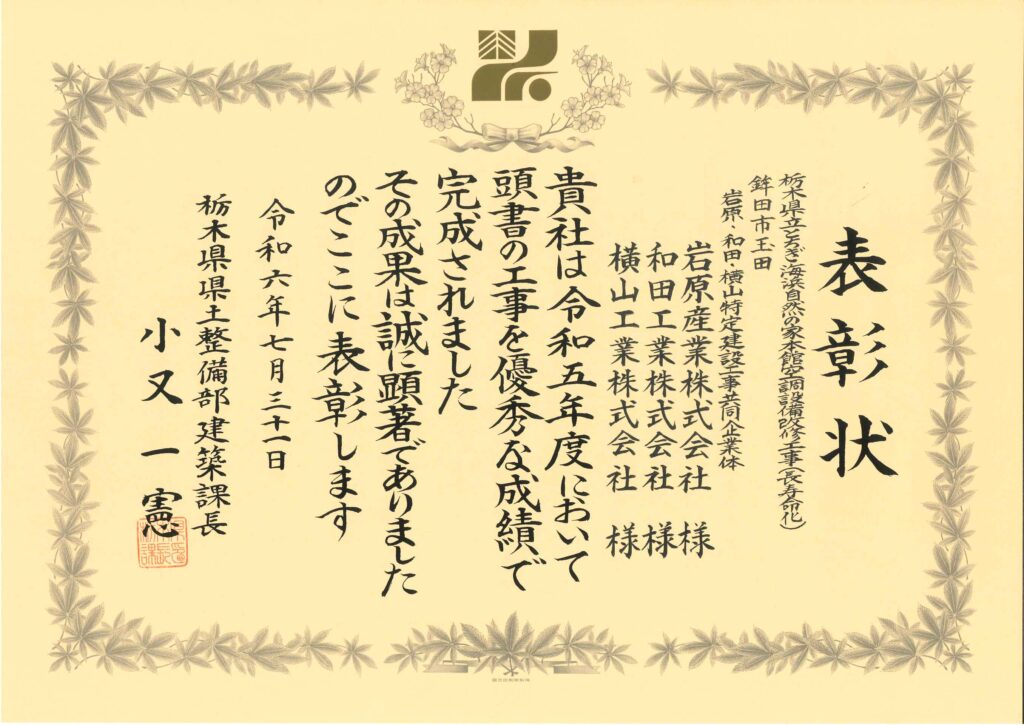 表彰状
栃木県立とちぎ海浜自然の家本館空調設備改修工事（長寿命化）
鉾田市玉田
岩原・和田・横山特定建設工事共同企業体
岩原産業株式会社 様
和田工業株式会社 様
横山工業株式会社 様
貴社は令和五年度において
頭書の工事を優秀な成績で
完成されました
その成果は誠に顕著でありました
のでここに表彰します
令和六年七月三十一日
栃木県県土整備部建築課長
小又一憲